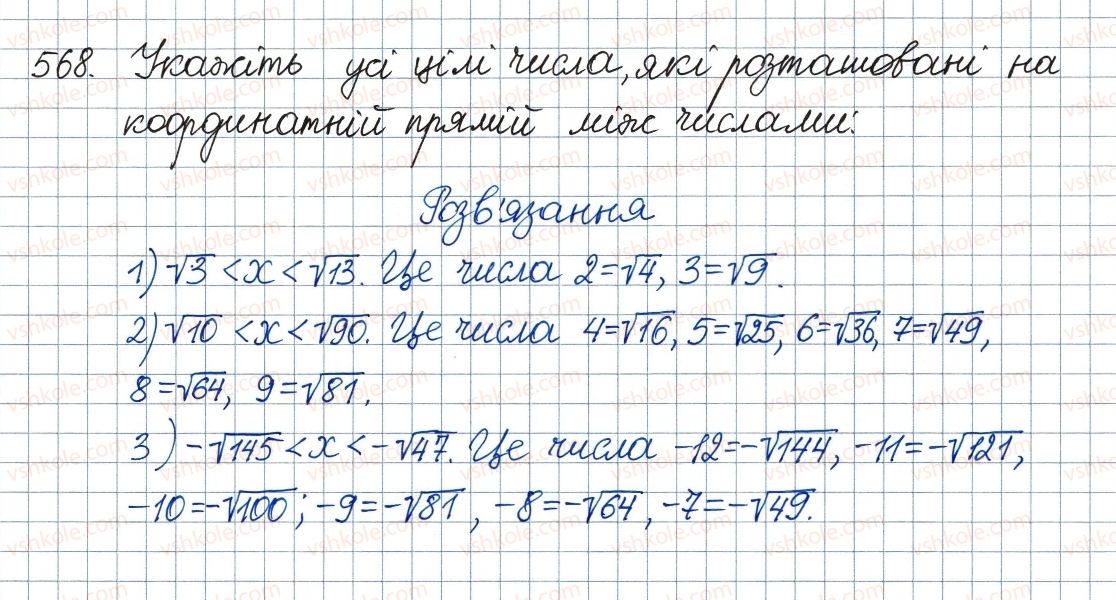 568. Укажіть усі цілі числа, які розташовані на
координатній прямій між числами:
Розв'язання
1) √3 < x < √13. Це числа 2=√4, 3=√9.
2) √10 < x < √90. Це числа 4=√16, 5=√25, 6=√36, 7=√49,
8=√64, 9=√81.
3) -√145 < x < -√47. Це числа -12=-√144, -11=-√121,
-10=-√100; -9=-√81, -8=-√64, -7=-√49.